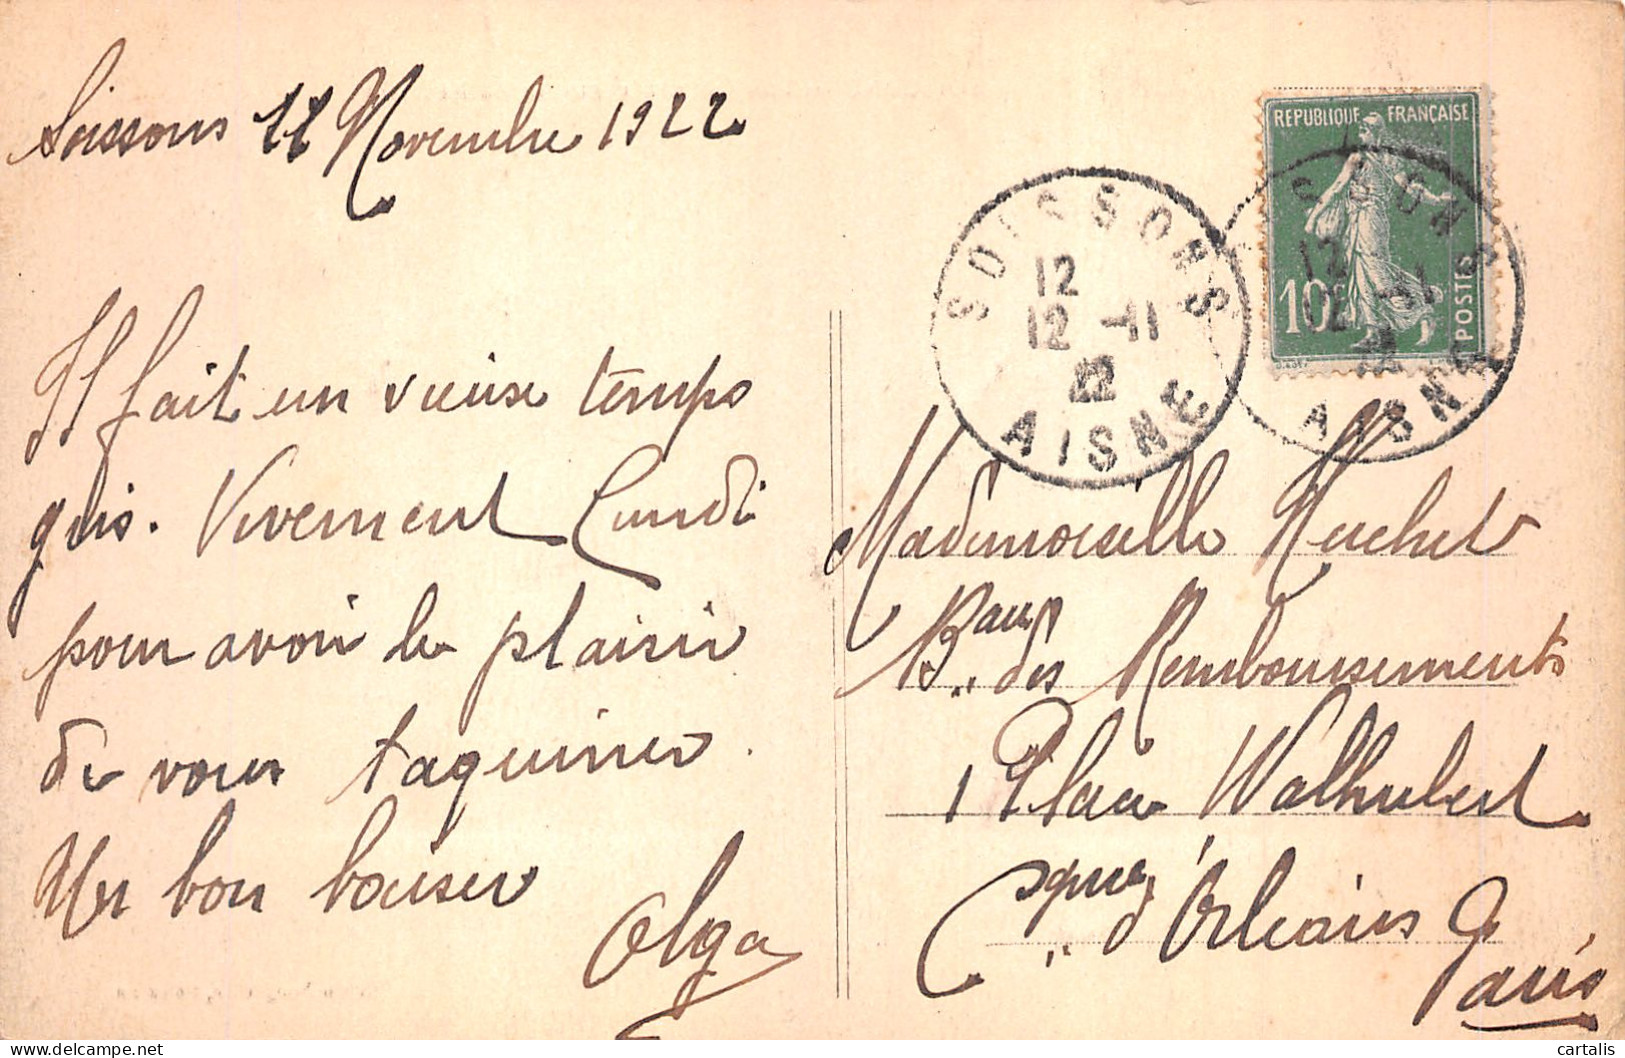 Soissons 11 Novembre 1922
Il fait un vieux temps
gris. Vivement Lundi
pour avoir le plaisir
de vous taquiner.
Un bon baiser
Olga
REPUBLIQUE FRANÇAISE
10c
POSTES
SOISSONS
12
12 -11
22
AISNE
SOISSONS
12
12 -11
22
AISNE
Mademoiselle Huchet
Beau des Remboursements
1 Place Walhubert
Cie d'Orléans Paris
cartalis